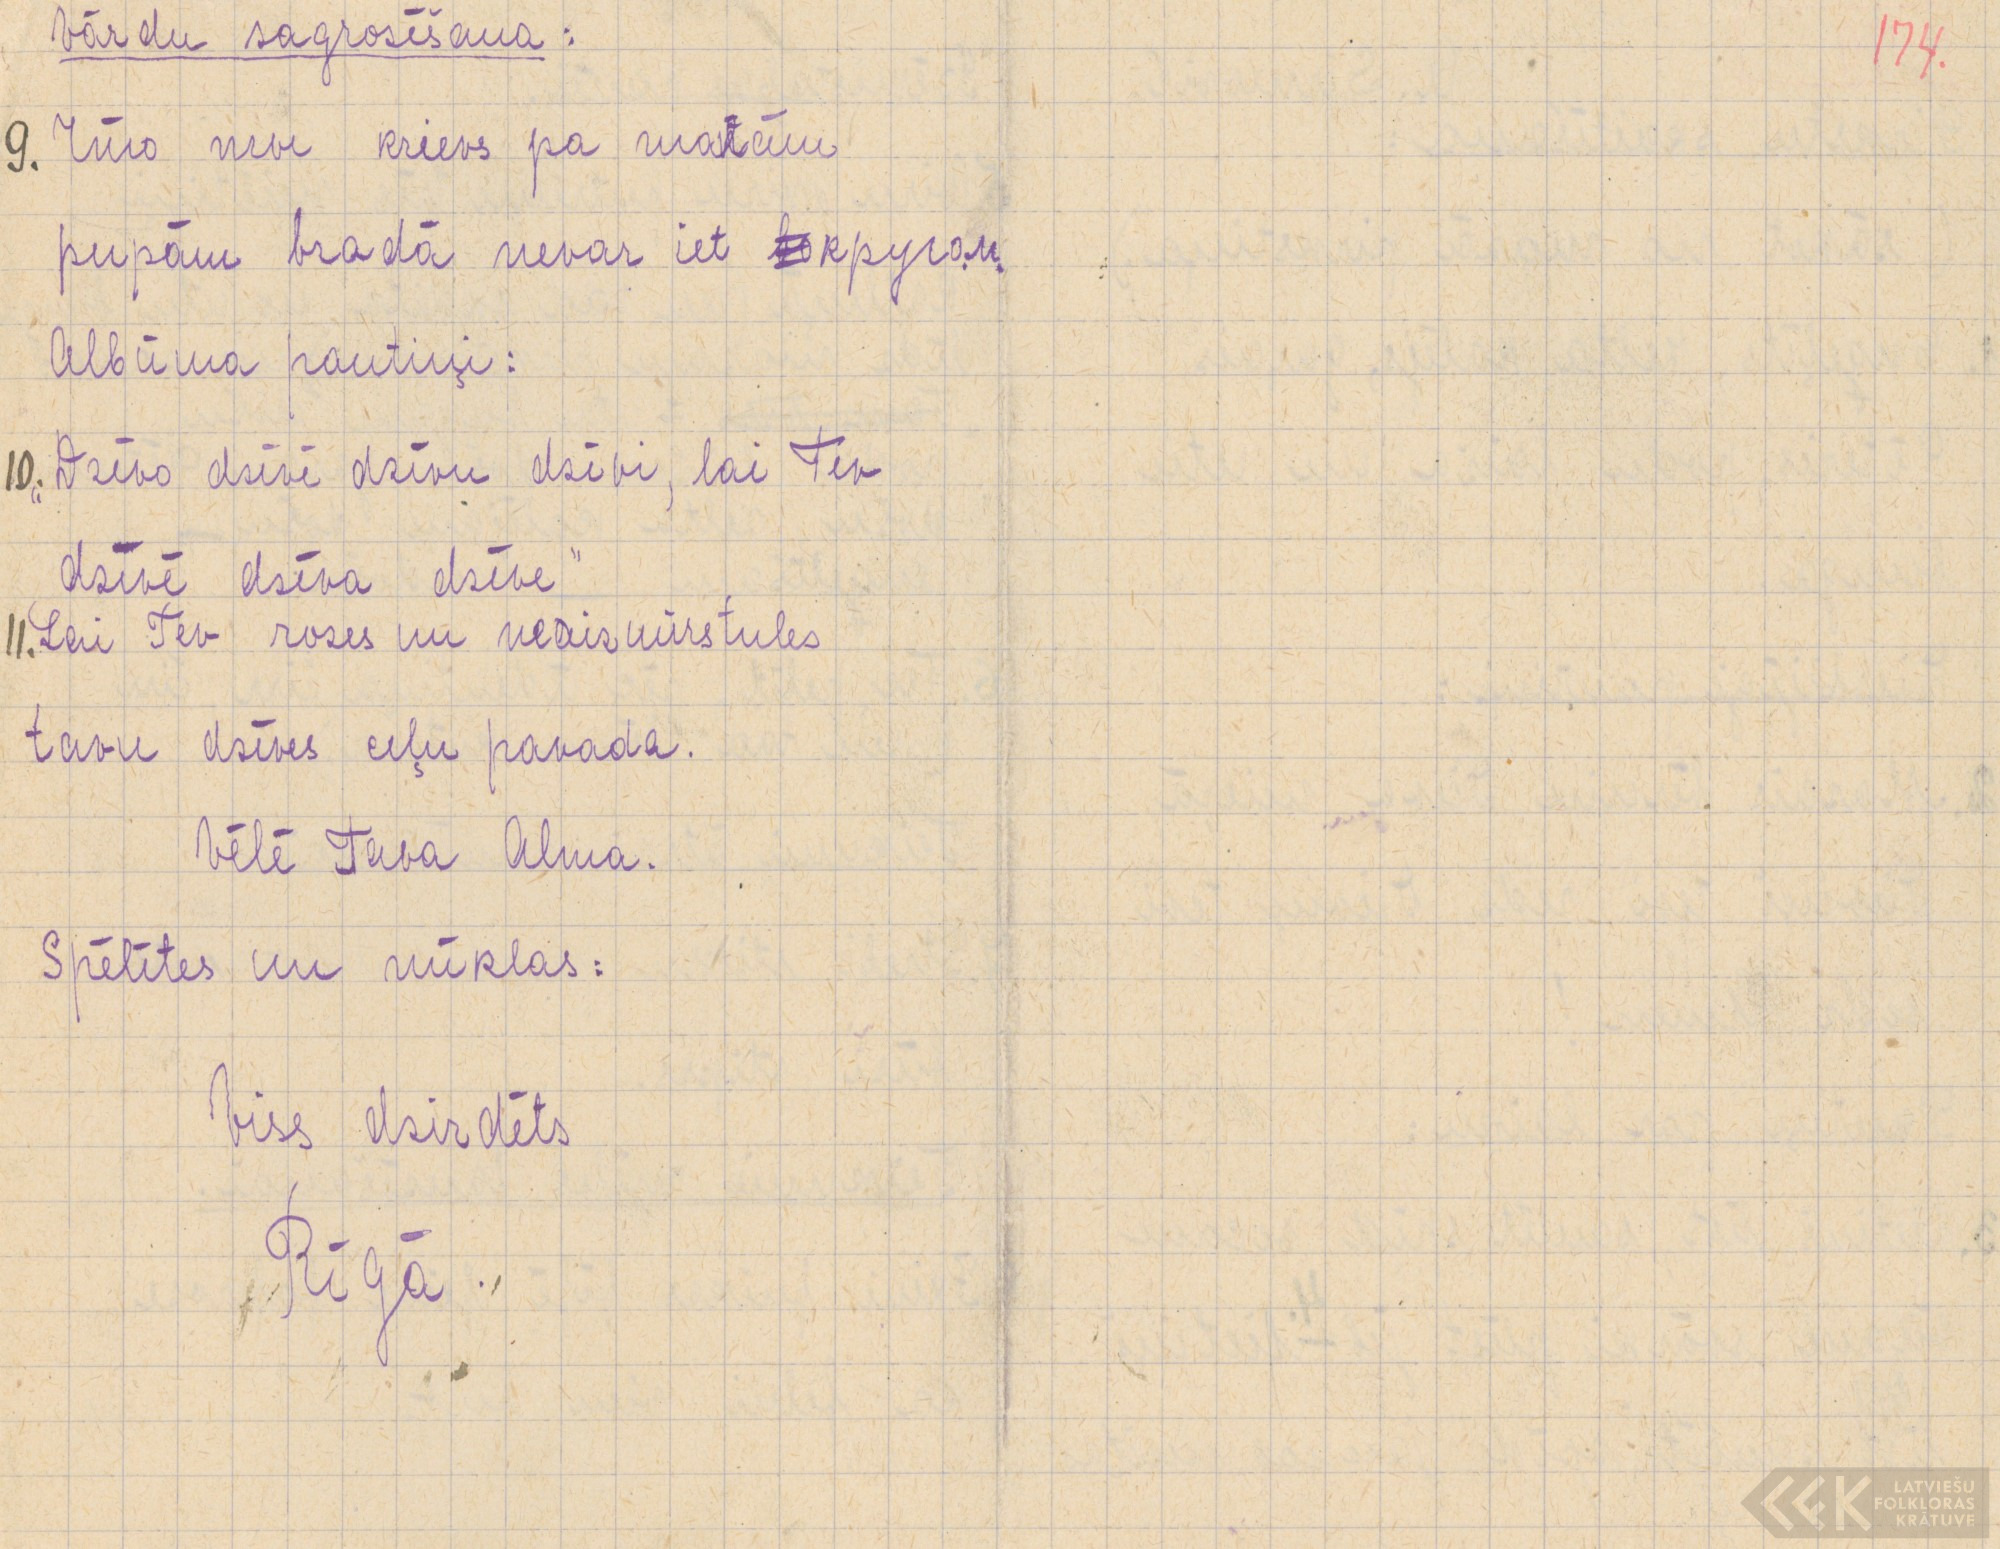 Vārdu sagrozīšana:
174.
9. krievs pa
pupām bradā nevar iet кругом
Albūma pantiņi:
10. „Dzīvo dzīvē dzīvu dzīvi, lai Tev
dzīvē dzīva dzīve"
11. Lai Tev rozes un neaizmirstules
tavu dzīves ceļu pavada.
Vēlē Tava Alma.
Spēlītes un mīklas:
Viss dzirdēts
Rīgā.
LATVIEŠU
FOLKLORAS
KRĀTUVE